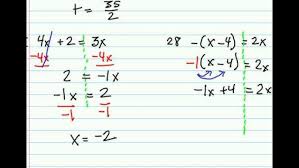 t = 35/2
4x + 2 = 3x
-4x -4x
2 = -1x
-1x = 2
-1 -1
x = -2
28 -(x-4) = 2x
-1(x-4) = 2x
-1x +4 = 2x